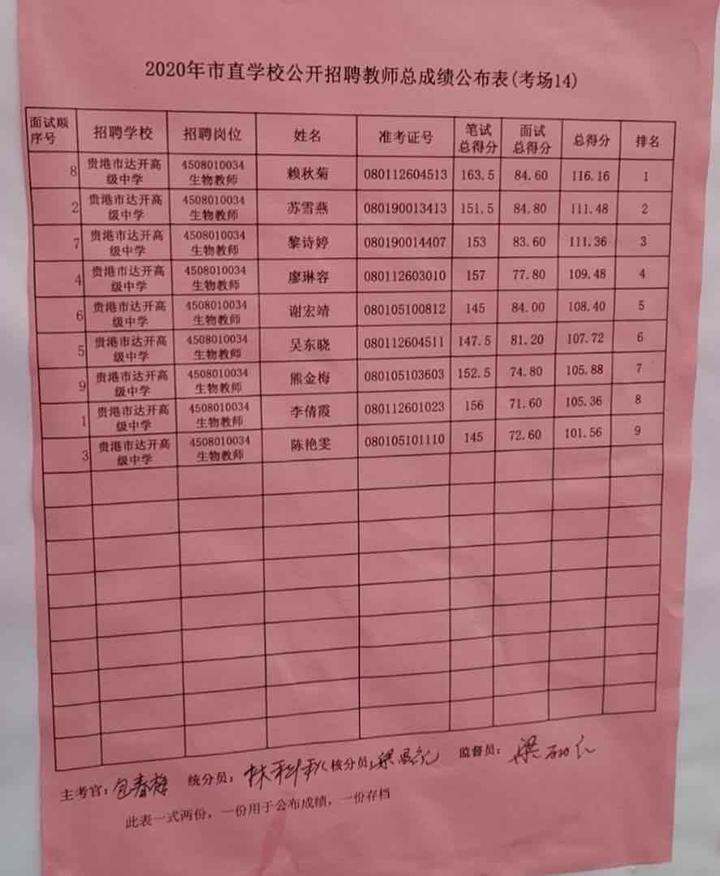 2020年市直学校公开招聘教师总成绩公布表(考场14)
面试顺序号 招聘学校 招聘岗位 姓名 准考证号 笔试总得分 面试总得分 总得分 排名
8 贵港市达开高级中学 4508010034生物教师 赖秋菊 080112604513 163.5 84.60 116.16 1
2 贵港市达开高级中学 4508010034生物教师 苏雪燕 080190013413 151.5 84.80 111.48 2
7 贵港市达开高级中学 4508010034生物教师 黎诗婷 080190014407 153 83.60 111.36 3
4 贵港市达开高级中学 4508010034生物教师 廖琳容 080112603010 157 77.80 109.48 4
6 贵港市达开高级中学 4508010034生物教师 谢宏靖 080105100812 145 84.00 108.40 5
5 贵港市达开高级中学 4508010034生物教师 吴东晓 080112604511 147.5 81.20 107.72 6
9 贵港市达开高级中学 4508010034生物教师 熊金梅 080105103603 152.5 74.80 105.88 7
1 贵港市达开高级中学 4508010034生物教师 李倩霞 080112601023 156 71.60 105.36 8
3 贵港市达开高级中学 4508010034生物教师 陈艳雯 080105101110 145 72.60 101.56 9
主考官: 包春静 统分员: 核分员: 监督员:
此表一式两份，一份用于公布成绩，一份存档